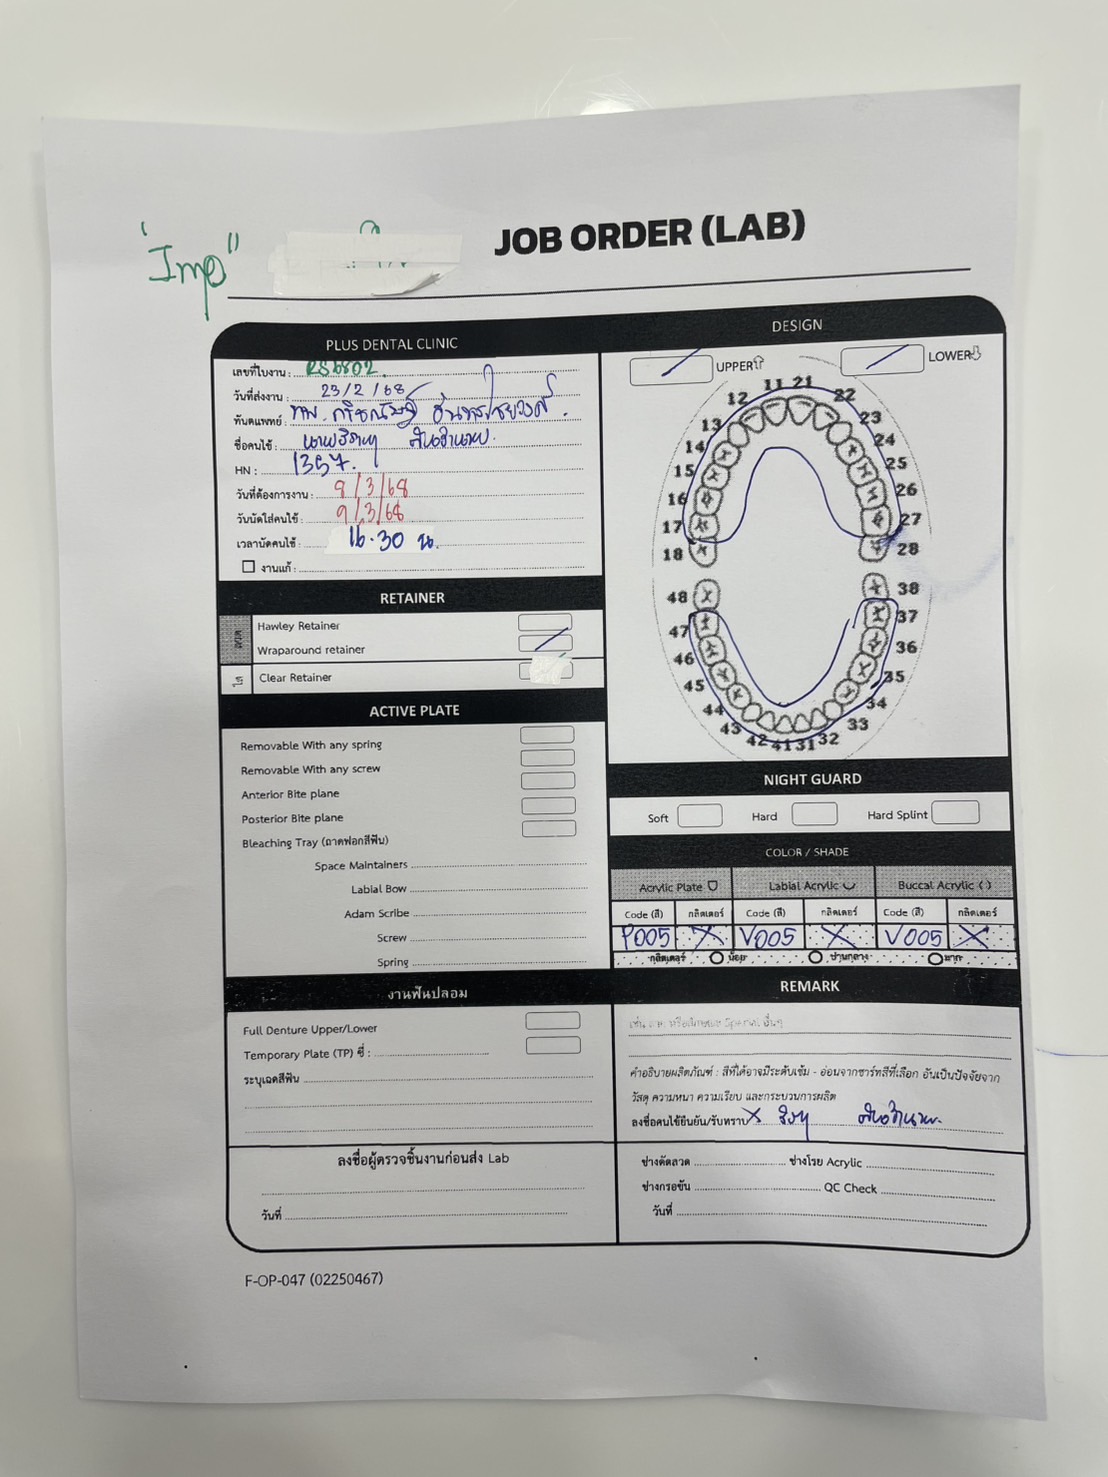 "Imp"
JOB ORDER (LAB)
PLUS DENTAL CLINIC
เลขที่ใบงาน : RS6802.
วันที่ส่งงาน : 23/2/68
ทันตแพทย์: ทพ.
ชื่อคนไข้ :
HN : 1357.
วันที่ต้องการงาน : 9/3/68
วันนัดใส่คนไข้ : 9/3/68
เวลานัดคนไข้ : 16.30 น.
งานแก้ :
RETAINER
ลวด
Hawley Retainer
Wraparound retainer
ใส
Clear Retainer
ACTIVE PLATE
Removable With any spring
Removable With any screw
Anterior Bite plane
Posterior Bite plane
Bleaching Tray (ถาดฟอกสีฟัน)
Space Maintainers
Labial Bow
Adam Scribe
Screw
Spring
งานฟันปลอม
Full Denture Upper/Lower
Temporary Plate (TP) ซี่ :
ระบุเฉดสีฟัน
ลงชื่อผู้ตรวจชิ้นงานก่อนส่ง Lab
วันที่
DESIGN
UPPER LOWER
11 21
12 22
13 23
14 24
15 25
16 26
17 27
18 28
48 38
47 37
46 36
45 35
44 34
43 33
42 41 31 32
NIGHT GUARD
Soft Hard Hard Splint
COLOR / SHADE
Acrylic Plate Labial Acrylic Buccal Acrylic ( )
Code (สี) กลิตเตอร์ Code (สี) กลิตเตอร์ Code (สี) กลิตเตอร์
P005 X V005 X V005 X
กลิตเตอร์ น้อย ปานกลาง มาก
REMARK
คำอธิบายผลิตภัณฑ์ : สีที่ได้อาจมีระดับเข้ม - อ่อนจากชาร์ทสีที่เลือก อันเป็นปัจจัยจาก
วัสดุ ความหนา ความเรียบ และกระบวนการผลิต
ลงชื่อคนไข้ยืนยัน/รับทราบ X
ช่างดัดลวด ช่างโรย Acrylic
ช่างกรอขัน QC Check
วันที่
F-OP-047 (02250467)